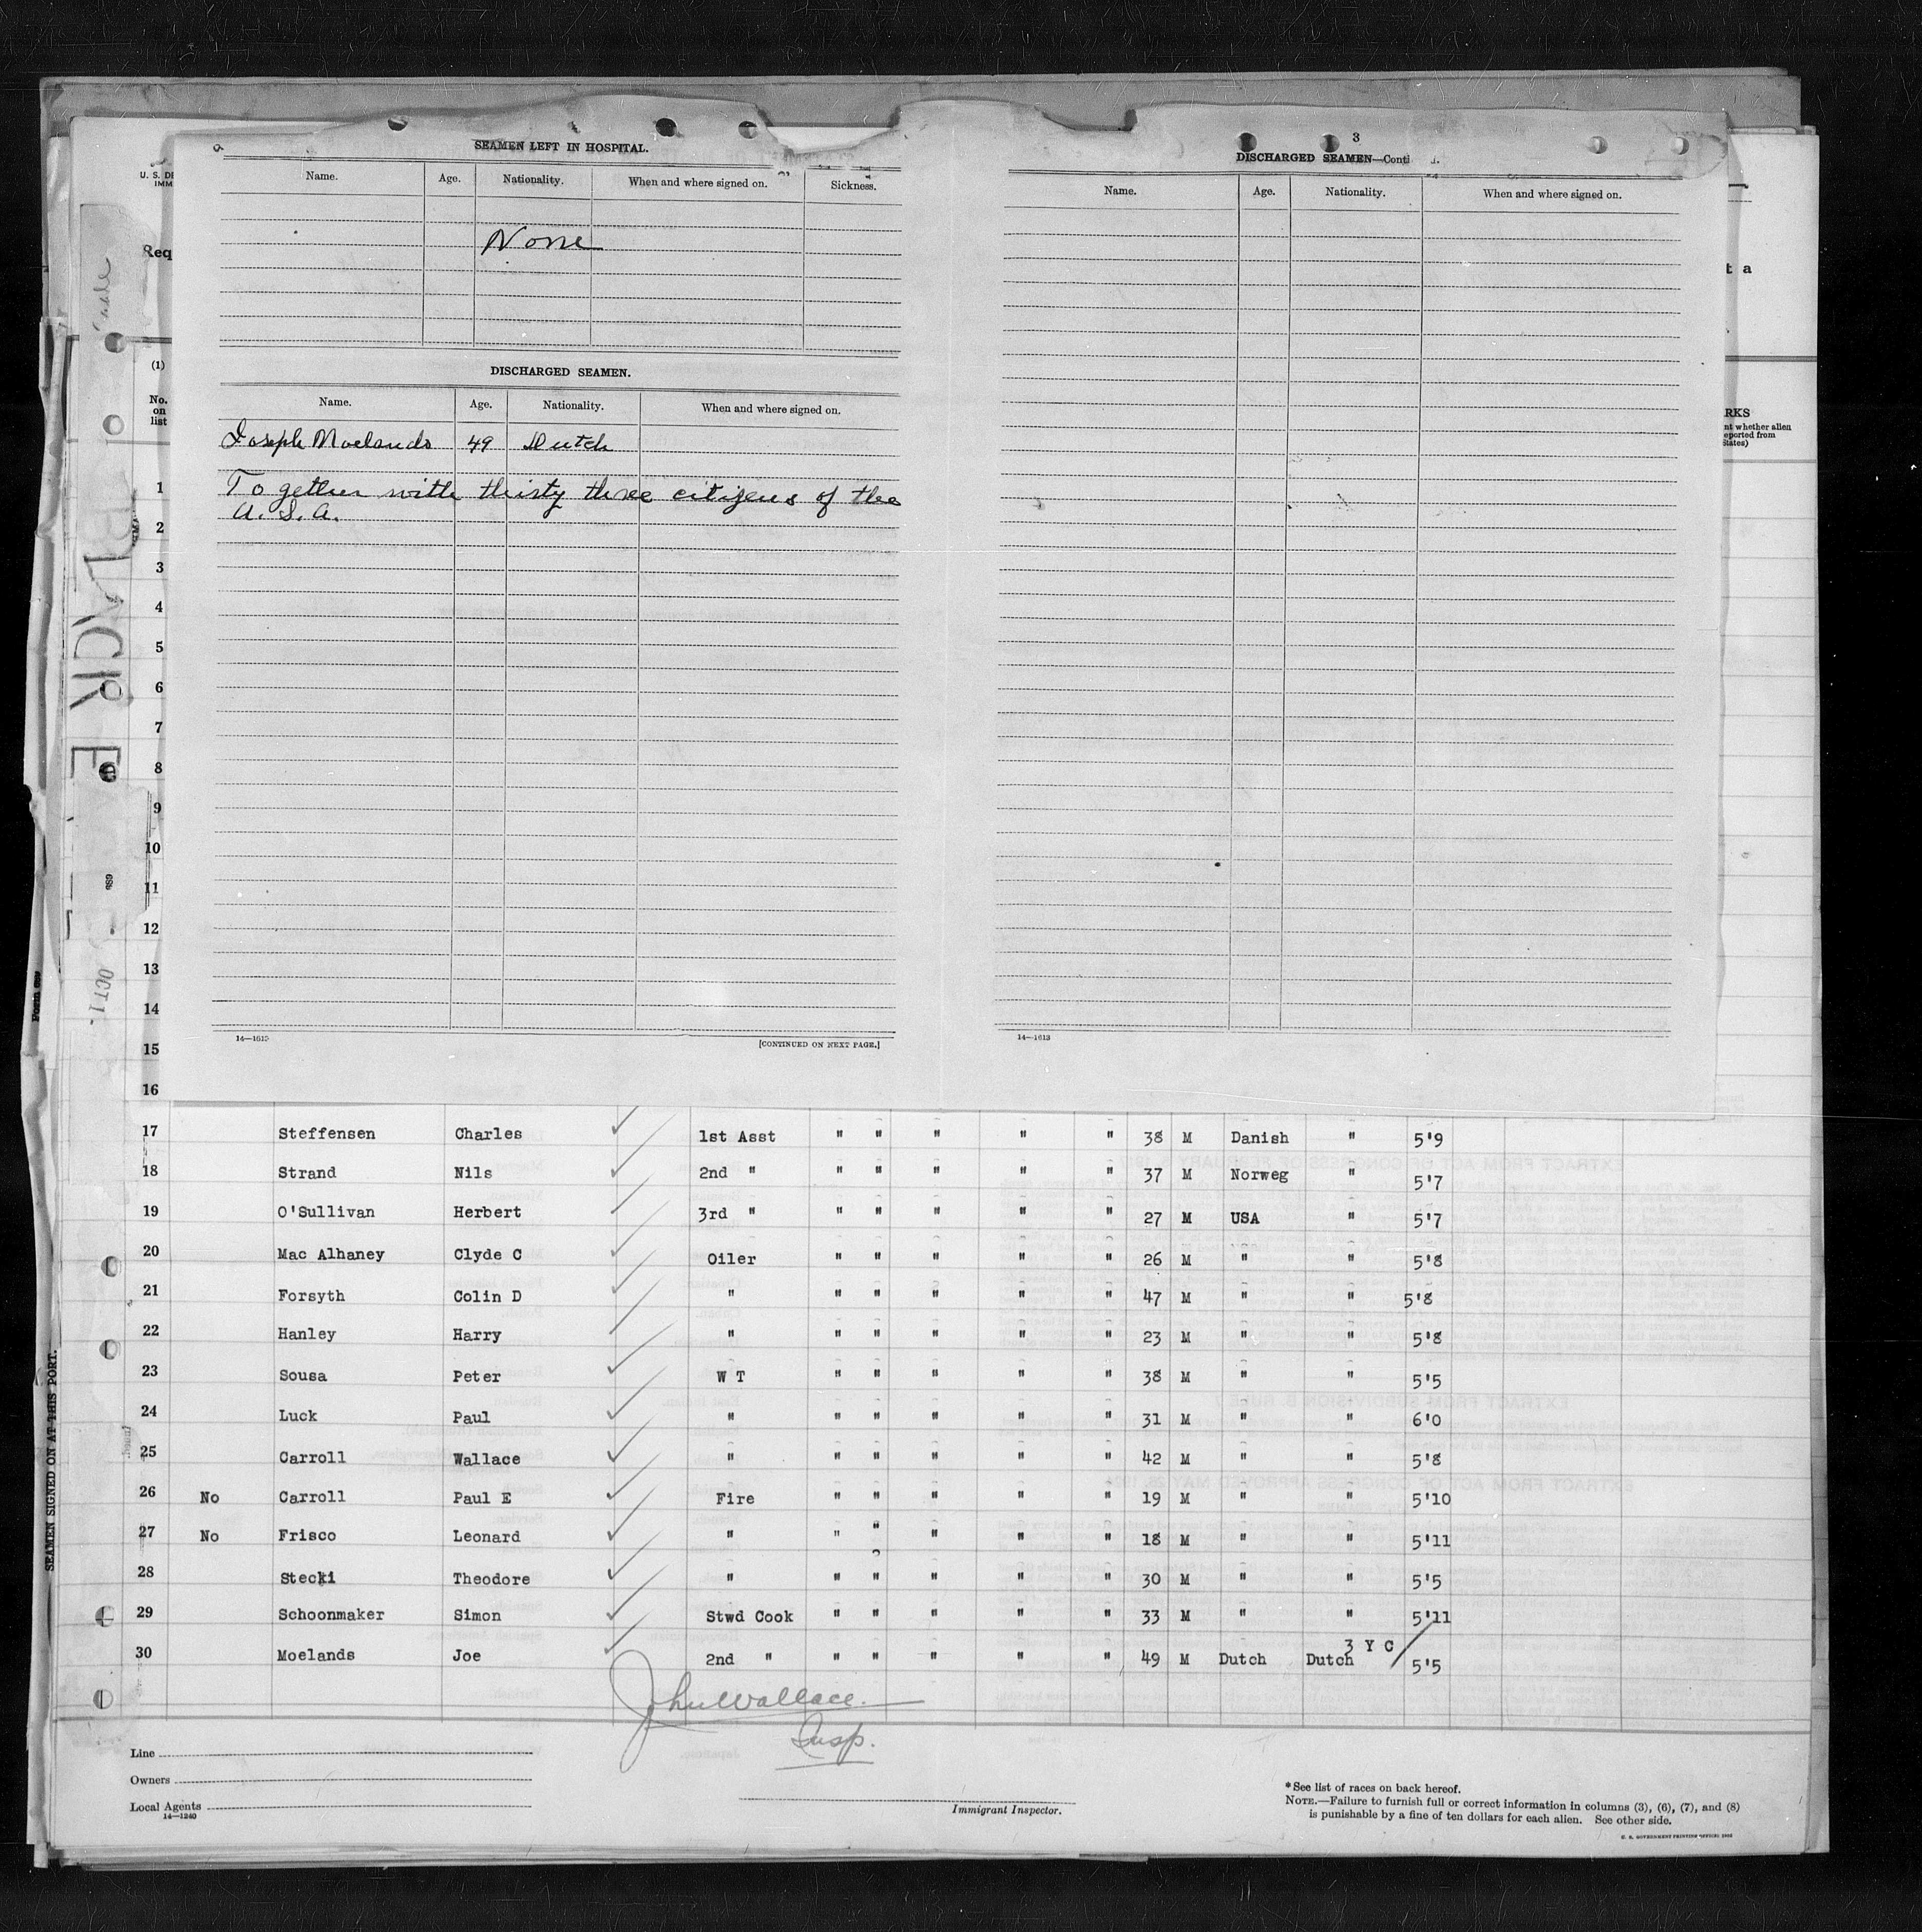 SEAMEN LEFT IN HOSPITAL.
Name. Age. Nationality. When and where signed on. Sickness.
None
DISCHARGED SEAMEN.
Name. Age. Nationality. When and where signed on.
Joseph Moelands 49 Dutch
Together with thirty three citizens of the
U.S.A.
[CONTINUED ON NEXT PAGE.]
3
DISCHARGED SEAMEN—Conti d.
Name. Age. Nationality. When and where signed on.
14—1613
U. S. DE
IMM
Req
t a
(1)
No.
on
list
RKS
nt whether alien
eported from
States)
1
2
3
4
5
6
7
8
9
10
11
12
13
14
15
16
17 Steffensen Charles 1st Asst " " " " " 38 M Danish " 5'9
18 Strand Nils 2nd " " " " " " 37 M Norweg " 5'7
19 O'Sullivan Herbert 3rd " " " " " " 27 M USA " 5'7
20 Mac Alhaney Clyde C Oiler " " " " " 26 M " " 5'8
21 Forsyth Colin D " " " " " " 47 M " " 5'8
22 Hanley Harry " " " " " " 23 M " " 5'8
23 Sousa Peter W T " " " " " 38 M " " 5'5
24 Luck Paul " " " " " " 31 M " " 6'0
25 Carroll Wallace " " " " " " 42 M " " 5'8
26 No Carroll Paul E Fire " " " " " 19 M " " 5'10
27 No Frisco Leonard " " " " " " 18 M " " 5'11
28 Stecki Theodore " " " " " " 30 M " " 5'5
29 Schoonmaker Simon Stwd Cook " " " " " 33 M " " 5'11
30 Moelands Joe 2nd " " " " " " 49 M Dutch Dutch 3 Y C 5'5
John Wallace
Insp.
Line
Owners
Local Agents
14—1240
Immigrant Inspector.
*See list of races on back hereof.
NOTE.—Failure to furnish full or correct information in columns (3), (6), (7), and (8)
is punishable by a fine of ten dollars for each alien. See other side.
SEAMEN SIGNED ON AT THIS PORT.